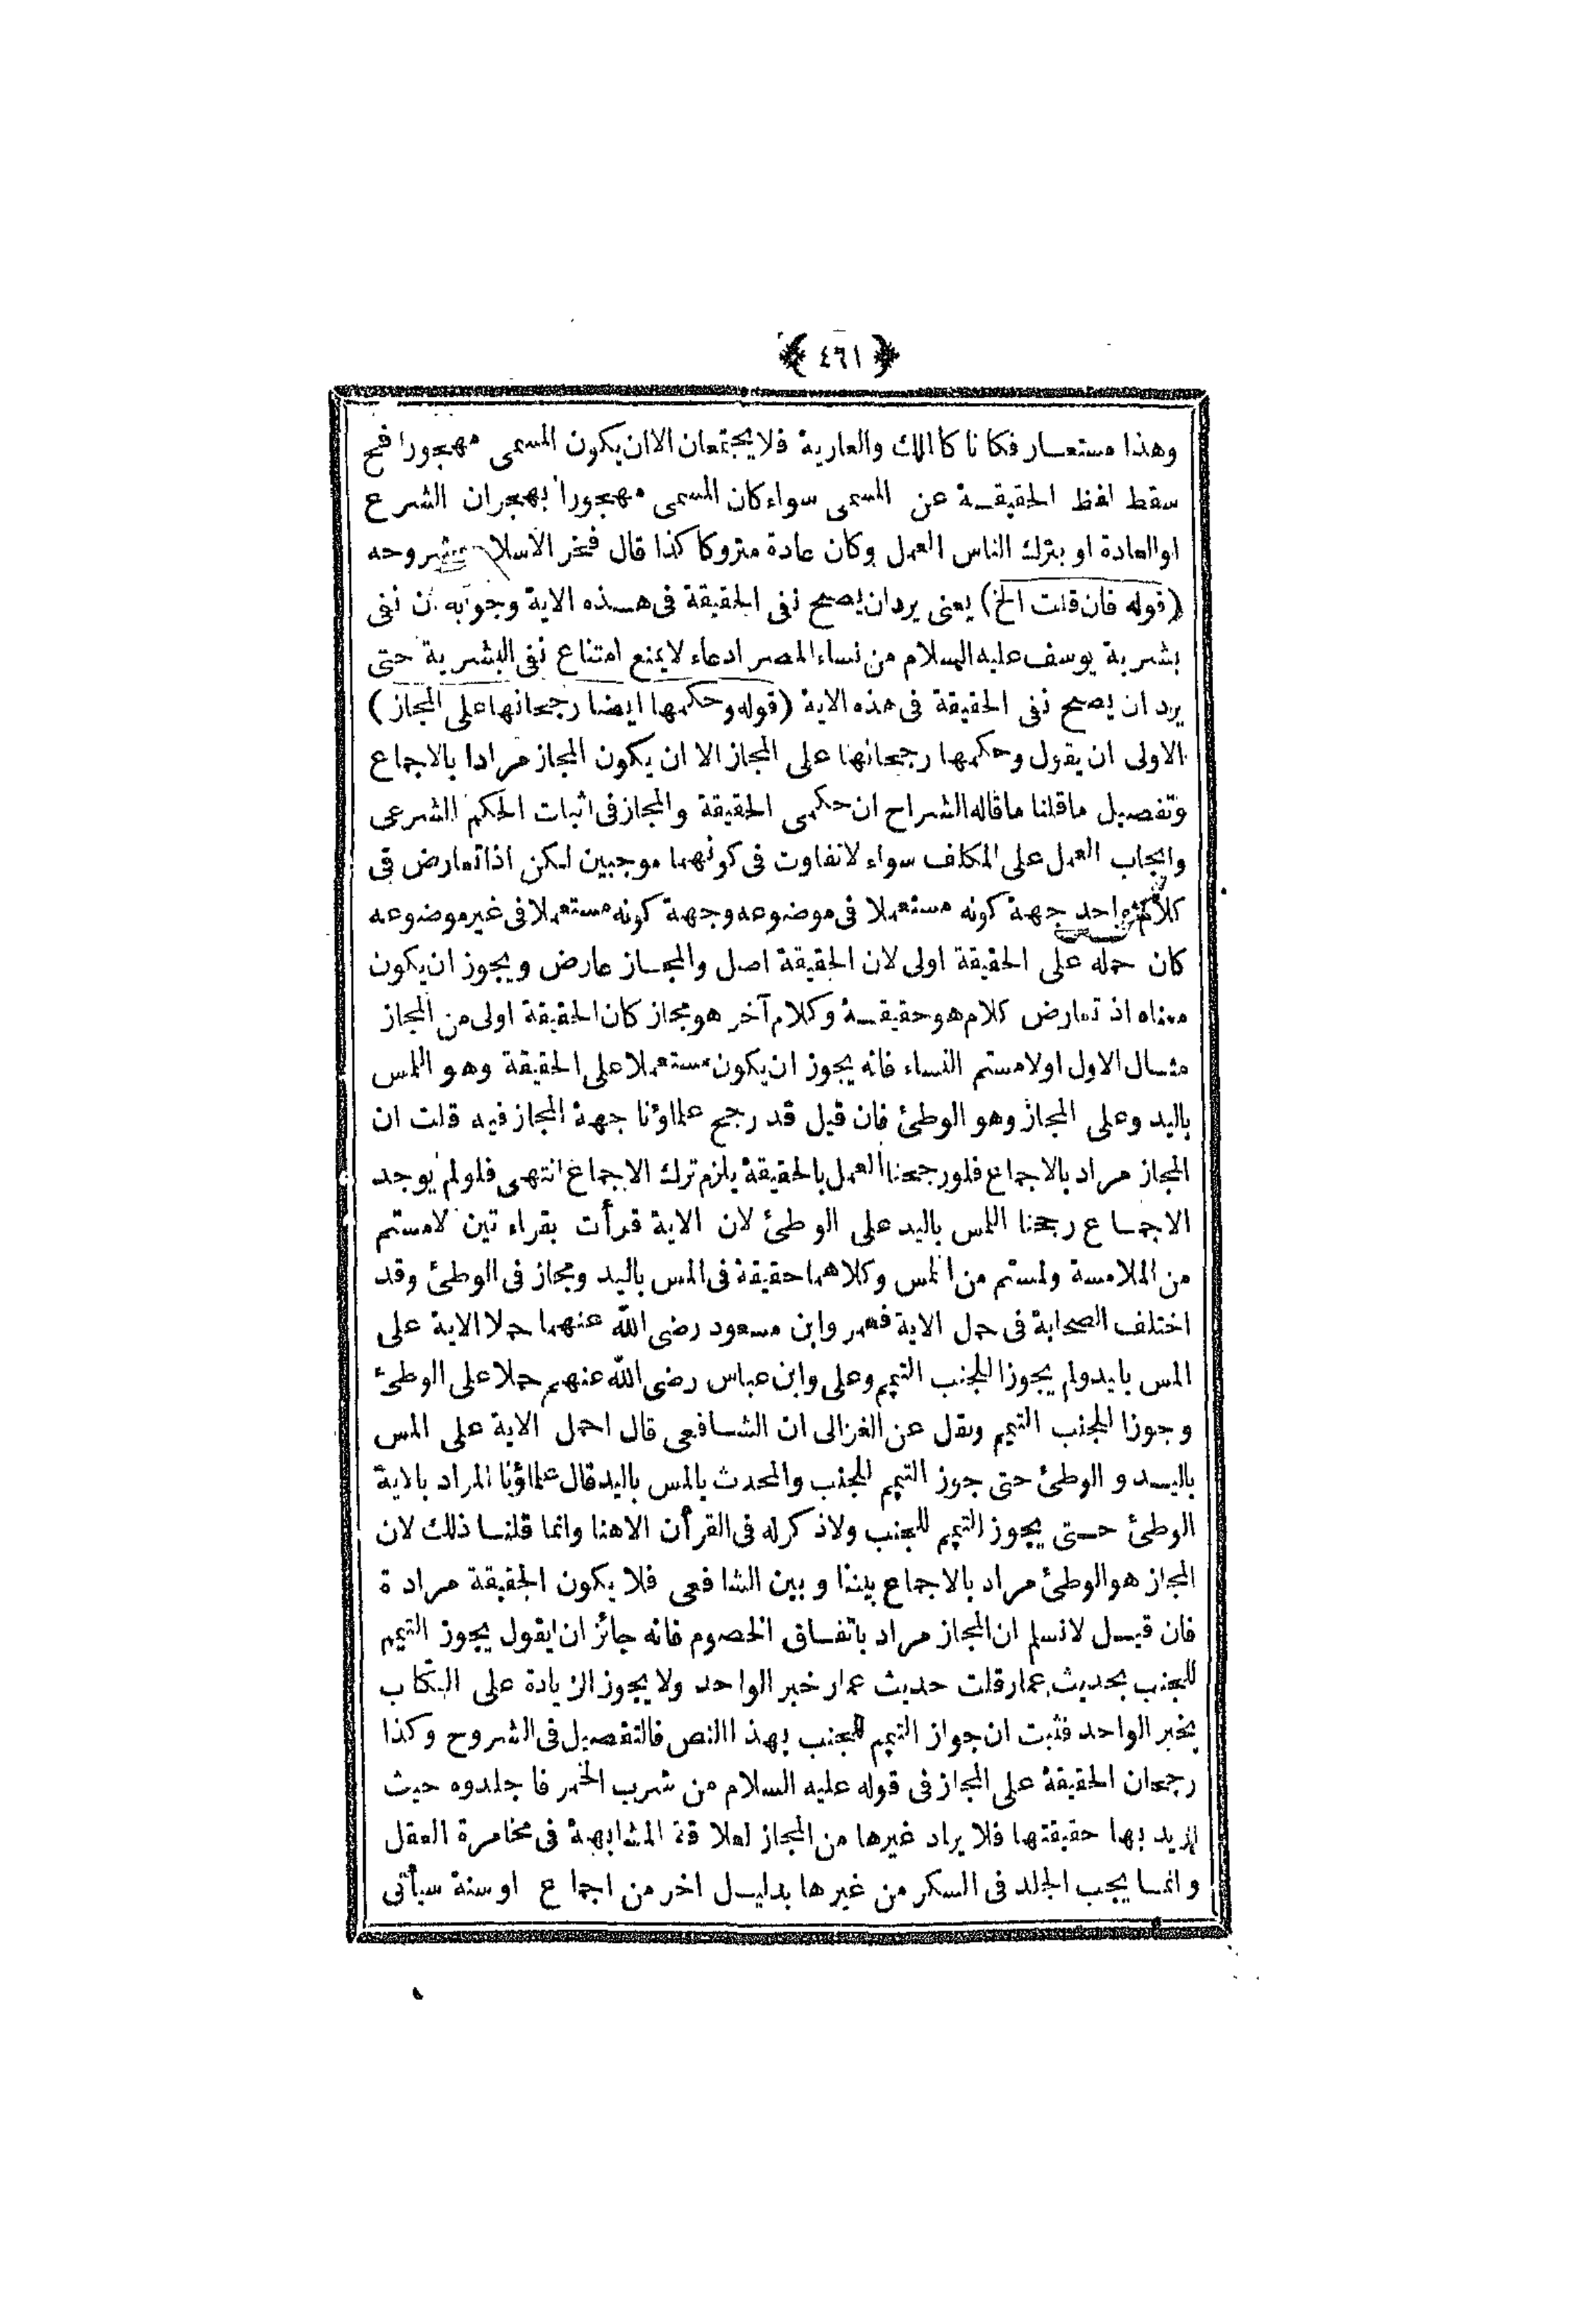 ﴿ ٤٦١ ﴾
وهذا مستعار فكانا كالملك والعارية فلايجتمعان الاان يكون المسمى مهجورا فح
سقط لفظ الحقيقة عن المسمى سواء كان المسمى مهجورا بهجران الشرع
اوالعادة او بترك الناس العمل وكان عادة متروكا كذا قال فخر الاسلام وشروحه
(قوله فان قلت الخ) يعنى يردان يصح نفى الحقيقة فى هذه الاية وجوابه ان نفى
بشرية يوسف عليه السلام من نساء المصر ادعاء لايمنع امتناع نفى البشرية حتى
يرد ان يصح نفى الحقيقة فى هذه الاية (قوله وحكمها ايضا رجحانها على المجاز)
الاولى ان يقول وحكمها رجحانها على المجاز الا ان يكون المجاز مرادا بالاجماع
وتفصيل ماقلنا ماقاله الشراح ان حكمى الحقيقة والمجاز فى اثبات الحكم الشرعى
وايجاب العمل على المكلف سواء لاتفاوت فى كونهما موجبين لكن اذا تعارض فى
كلام واحد جهة كونه مستعملا فى موضوعه وجهة كونه مستعملا فى غير موضوعه
كان حمله على الحقيقة اولى لان الحقيقة اصل والمجاز عارض ويجوز ان يكون
معناه اذ تعارض كلام هو حقيقة وكلام آخر هو مجاز كان الحقيقة اولى من المجاز
مثال الاول اولامستم النساء فانه يجوز ان يكون مستعملا على الحقيقة وهو اللمس
باليد وعلى المجاز وهو الوطئ فان قيل قد رجح علماؤنا جهة المجاز فيه قلت ان
المجاز مراد بالاجماع فلو رجحنا العمل بالحقيقة يلزم ترك الاجماع انتهى فلولم يوجد
الاجماع رجحنا اللمس باليد على الوطئ لان الاية قرأت بقراء تين لامستم
من الملامسة ولمستم من المس وكلاهما حقيقة فى المس باليد ومجاز فى الوطئ وقد
اختلف الصحابة فى حمل الاية فعمر وابن مسعود رضى الله عنهما حملا الاية على
المس بايد ولم يجوزا للجنب التيمم وعلى وابن عباس رضى الله عنهم حملا على الوطئ
وجوزا للجنب التيمم ونقل عن الغزالى ان الشافعى قال احمل الاية على المس
باليد و الوطئ حتى جوز التيمم للجنب والمحدث بالمس باليد قال علماؤنا المراد بالاية
الوطئ حتى يجوز التيمم للجنب ولاذكر له فى القرأن الاهنا وانما قلنا ذلك لان
المجاز هو الوطئ مراد بالاجماع بيننا و بين الشافعى فلا يكون الحقيقة مرادة
فان قيل لانسلم ان المجاز مراد باتفاق الخصوم فانه جائز ان يقول يجوز التيمم
للجنب بحديث عمار قلت حديث عمار خبر الواحد ولا يجوز الزيادة على الكتاب
بخبر الواحد فثبت ان جواز التيمم للجنب بهذا النص فالتفصيل فى الشروح وكذا
رجحان الحقيقة على المجاز فى قوله عليه السلام من شرب الخمر فاجلدوه حيث
اريد بها حقيقتها فلا يراد غيرها من المجاز لعلاقة المشابهة فى مخامرة العقل
وانما يجب الجلد فى السكر من غيرها بدليل اخر من اجماع او سنة سيأتى